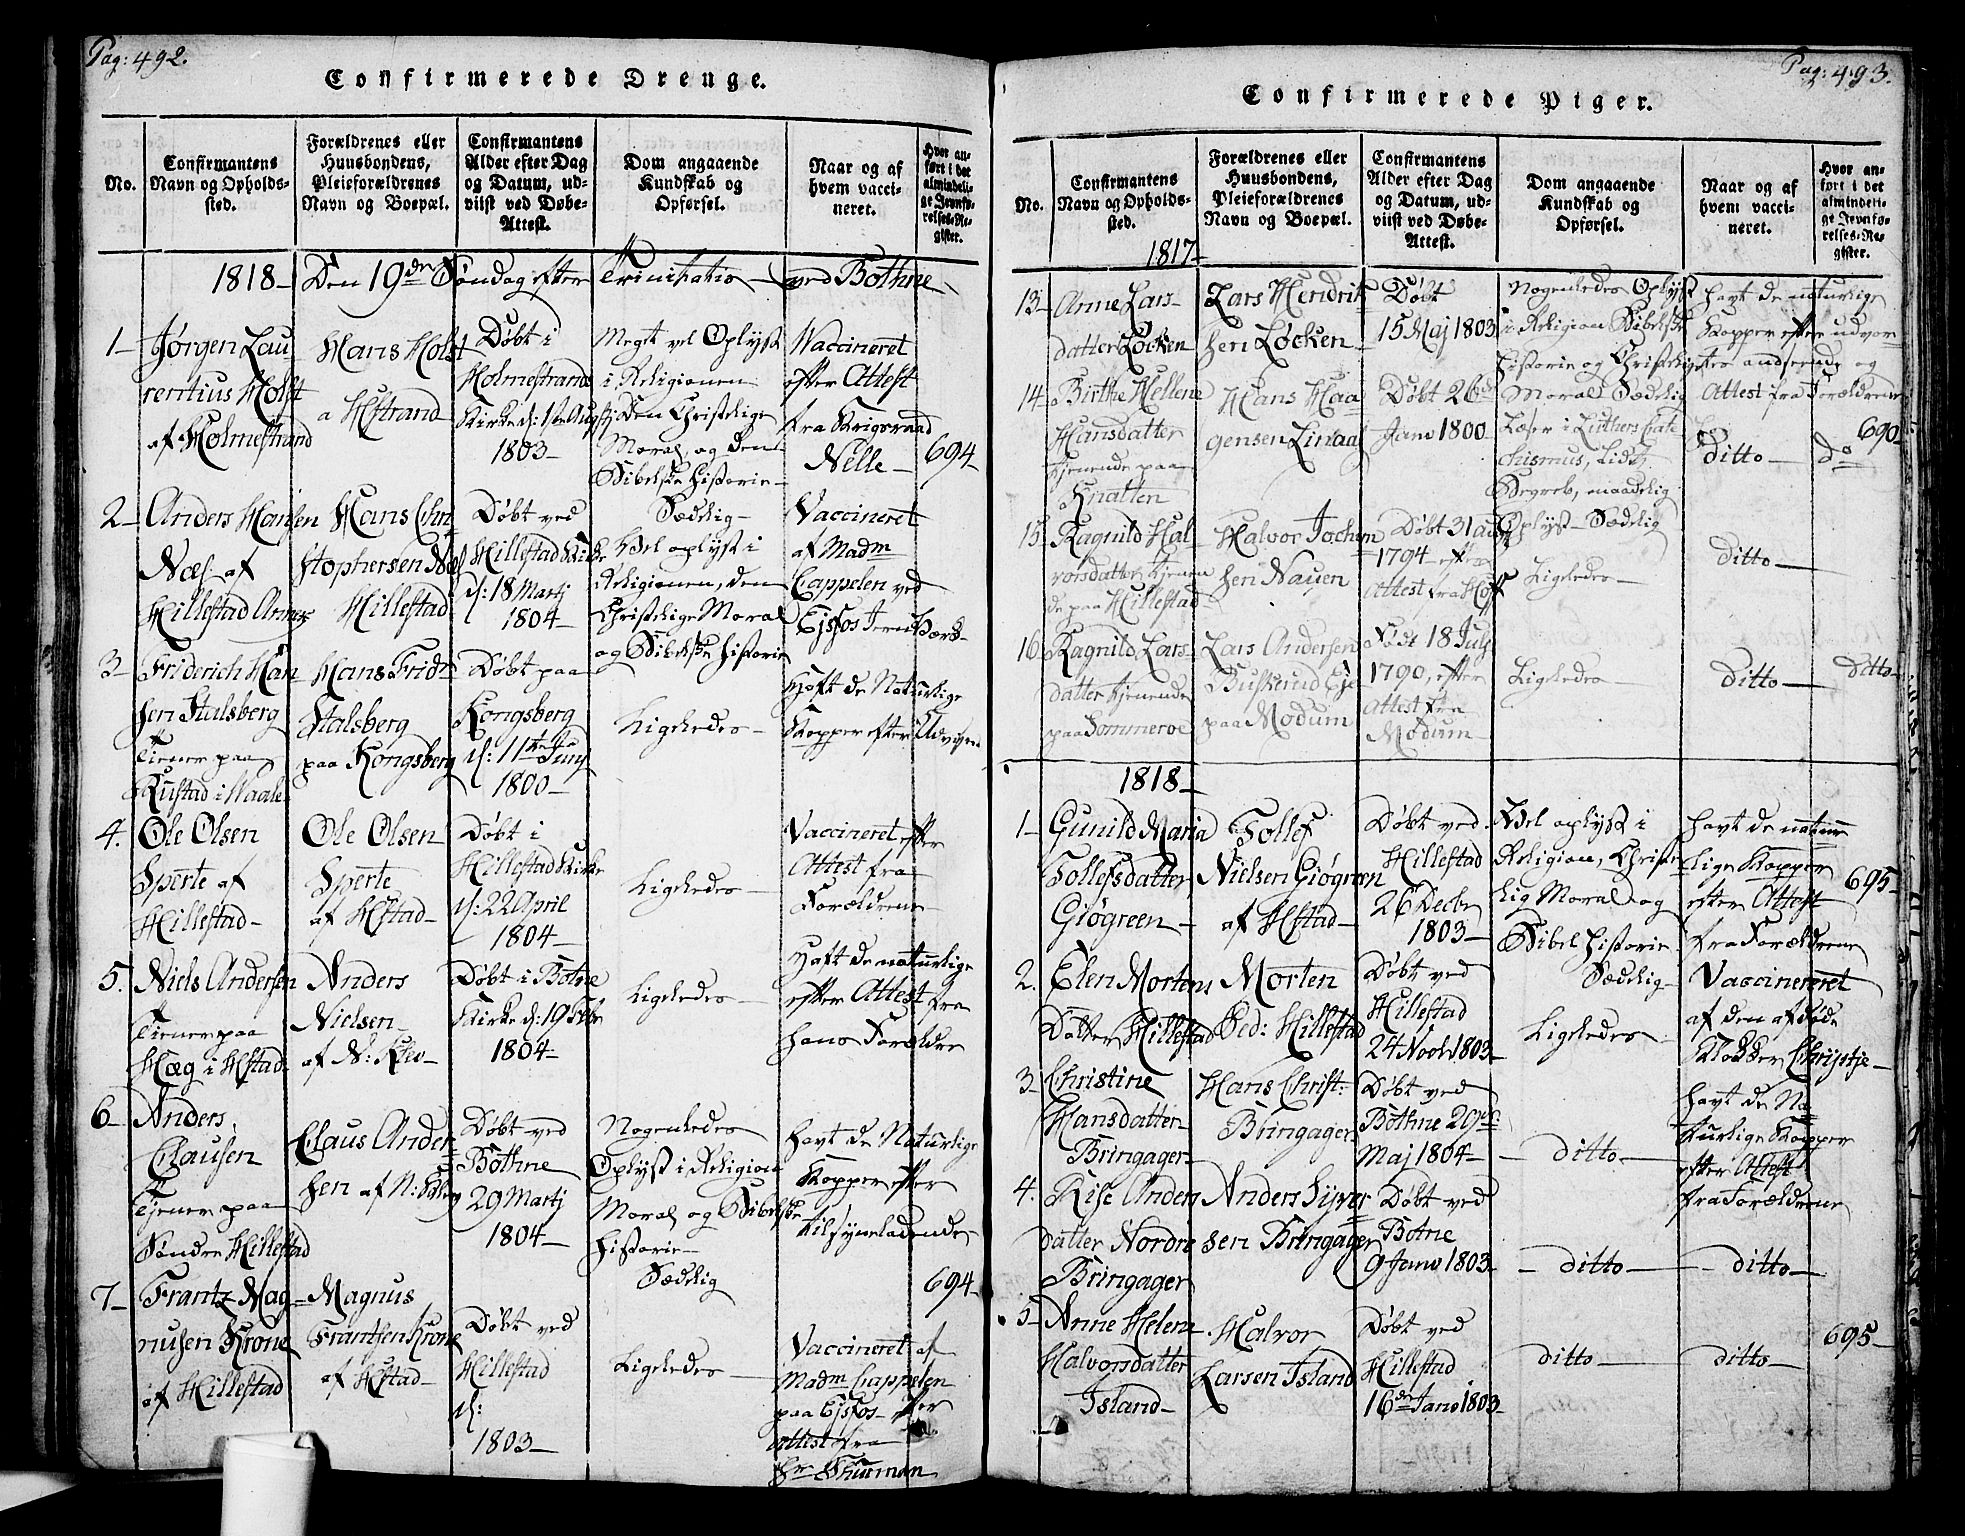 Pag: 492.
Confirmerede Drenge.
No.
Confirmantens
Navn og Opholds-
sted.
Forældrenes eller
Huusbondens,
Pleieforældrenes
Navn og Boepæl.
Confirmantens
Alder efter Dag
og Datum, ud-
viist ved Døbe-
Attest.
Dom angaaende
Kundskab og
Opførsel.
Naar og af
hvem vacci-
neret.
Hvor an-
ført i det
almindeli-
ge Jevnfø-
relses-Re-
gister.
1818 – Den 19de Søndag efter Trinitatis – ved Bothne –
1 –
Jørgen Lau
rentius Holst
af Holmestrand
Hans Holst
a Hstrand
Døbt i
Holmestrands
Kirke d: 1ste Aug
1803 –
Megt vel Oplyst
i Religionen
Den Christelige
Moral, og den
Bibelske Historie –
Sædelig –
Vaccineret
efter Attest
fra Krigsraad
Nelle –
694 –
2 –
Anders Hansen
Næs af
Hillestad Annex
Hans Chri
stophersen Næs
Hillestad
Døbt ved
Hillestad Kirke
d: 18 Martj
1804 –
Vel oplyst i
Religionen, den
Christelige Moral
og Bibelske Historie
Vaccineret
af Madm
Cappelen ved
Ejsfos Jernværk –
3 –
Friderich Han
sen Stalsberg
Tiener paa
Kustad i Waale
Hans Fridr
Stalsberg
paa Kongsberg
Døbt paa
Kongsberg
d: 11te Juny
1800 –
Ligeledes –
Haft de Naturlige
Kopper efter Udvisen
4.
Ole Olsen
Sperte af
Hillestad –
Ole Olsen
Sperte
af Hstad –
Døbt i
Hillestad Kirke
d: 22 April
1804 –
Ligeledes –
Vaccineret efter
Attest fra
Forældrene –
5.
Niels Andersen
Tiener paa
Hæg i Hstad
Anders
Nielsen –
af N:
Døbt i Botne
Kirke d: 19 Feb
1804 –
Ligeledes –
Haft de naturlige
efter Attest fra
hans Forældre
6 –
Anders
Clausen
Tjener paa
Søndre Hillestad
Claus Ander
sen af N:
Døbt ved
Bothne
29 Martj
1804 –
Nogenledes
Oplyst i Religion
Moral og Bibelske
Historie –
Sædelig
havt de Naturlige
Kopper efter
tilsyneladende
7 –
Frantz Mag
nusen Krone
af Hillestad
Magnus
Frantsen Krone
af Hstad –
Døbt ved
Hillestad
d:
1803 –
Ligeledes –
Vaccineret af
Madm Cappelen
paa Ejsfos – efter
Attest fra
Hr Thurman
694 –
Pag: 493.
Confirmerede Piger.
No.
Confirmantens
Navn og Opholds-
sted.
Forældrenes eller
Huusbondens,
Pleieforældrenes
Navn og Boepæl.
Confirmantens
Alder efter Dag
og Datum, ud-
viist ved Døbe-
Attest.
Dom angaaende
Kundskab og
Opførsel.
Naar og af
hvem vacci-
neret.
Hvor an-
ført i det
almindeli-
ge Jevnfø-
relses-Re-
gister.
1817 –
13 –
Anne Lars
datter Løcken
Lars Hendrik
sen Løcken
Døbt
15 Maj 1803
Nogenledes Oplyst
i Religion Bibelske
Historie og Christelige
Moral Sædelig
havt de naturlige
Kopper efter udvor
tes andseende og
Attest fra Forældrene
690 –
14 –
Birthe Hellene
Hansdatter
tjenende paa
Knatten
Hans Haa
gensen Linaae
Døbt 26de
Janv 1800 –
Læser i Luthers Cate
chismus, Lidet
Begreb, maadelig
Oplyst – Sædelig
ditto –
do
15
Ragnild Hal
vorsdatter tjenen
de paa Hillestad
Halvor Jochum
sen Nauen
Døbt 31 Aug
1794 efter
Attest fra Hoff
Ligeledes –
ditto –
16
Ragnild Lars
datter tjenende
paa Sommeroe
Lars Andersen
Buskerud Eje
paa Modum
Født 18 July
1790, efter
Attest fra
Modum –
Ligeledes
ditto –
ditto –
1818 –
1 –
Gunild Maria
Tollefsdatter
Giøgreen –
Tollef
Nielsen Giøgreen
af Hstad –
Døbt ved
Hillestad
26 Decbr
1803 –
Vel oplyst i
Religion, Christe
lig Moral og
Bibel Historie
Sædelig –
havt de natur
lige Kopper
efter Attest
fra Forældrene
695 –
2.
Elen Mortens
Datter Hillestad
Morten
Ped: Hillestad
Døbt ved
Hillestad
24 Novbr 1803 –
Ligeledes –
Vaccineret
af den afdøde
Klokker Christie –
3
Christine
Hansdatter
Bringager –
Hans Christ:
Bringager
Døbt ved
Bothne 29de
Maj 1804 –
– ditto –
havt de Na
turlige Kopper
efter Attest
fra Forældrene
4.
Rise Anders
datter Nordre
Bringager
Anders Syver
sen Bringager
Døbt ved
Botne
9 Janv 1803 –
– ditto –
– ditto –
5 –
Anne Helene
Halvorsdatter
Island –
Halvor
Larsen Island
Døbt ved
Hillestad
16de Janv 1803 –
ditto –
ditto –
695 –